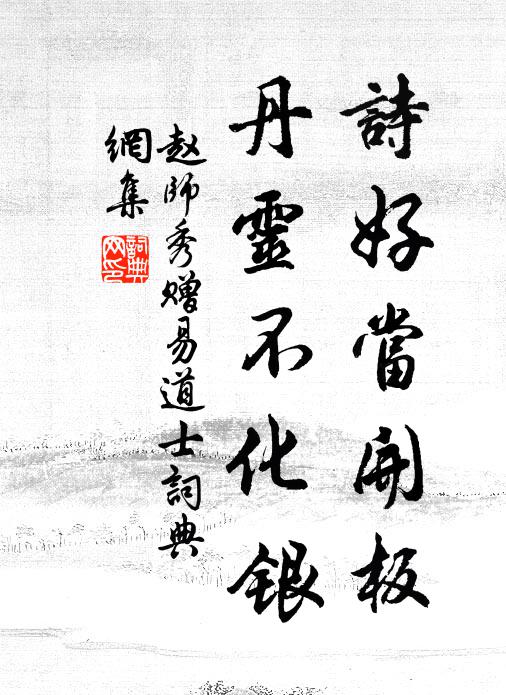 詩好當開板
丹靈不化銀
赵師秀赠易道士詞典
網集
詞典
网印